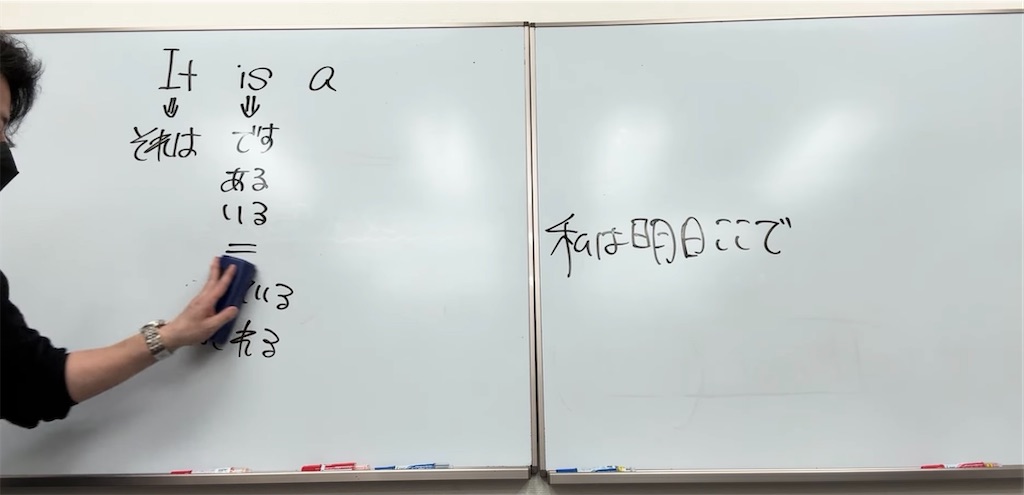 It is a
⇓ ⇓
それは です
ある
いる
=
いる
れる
私は明日ここで